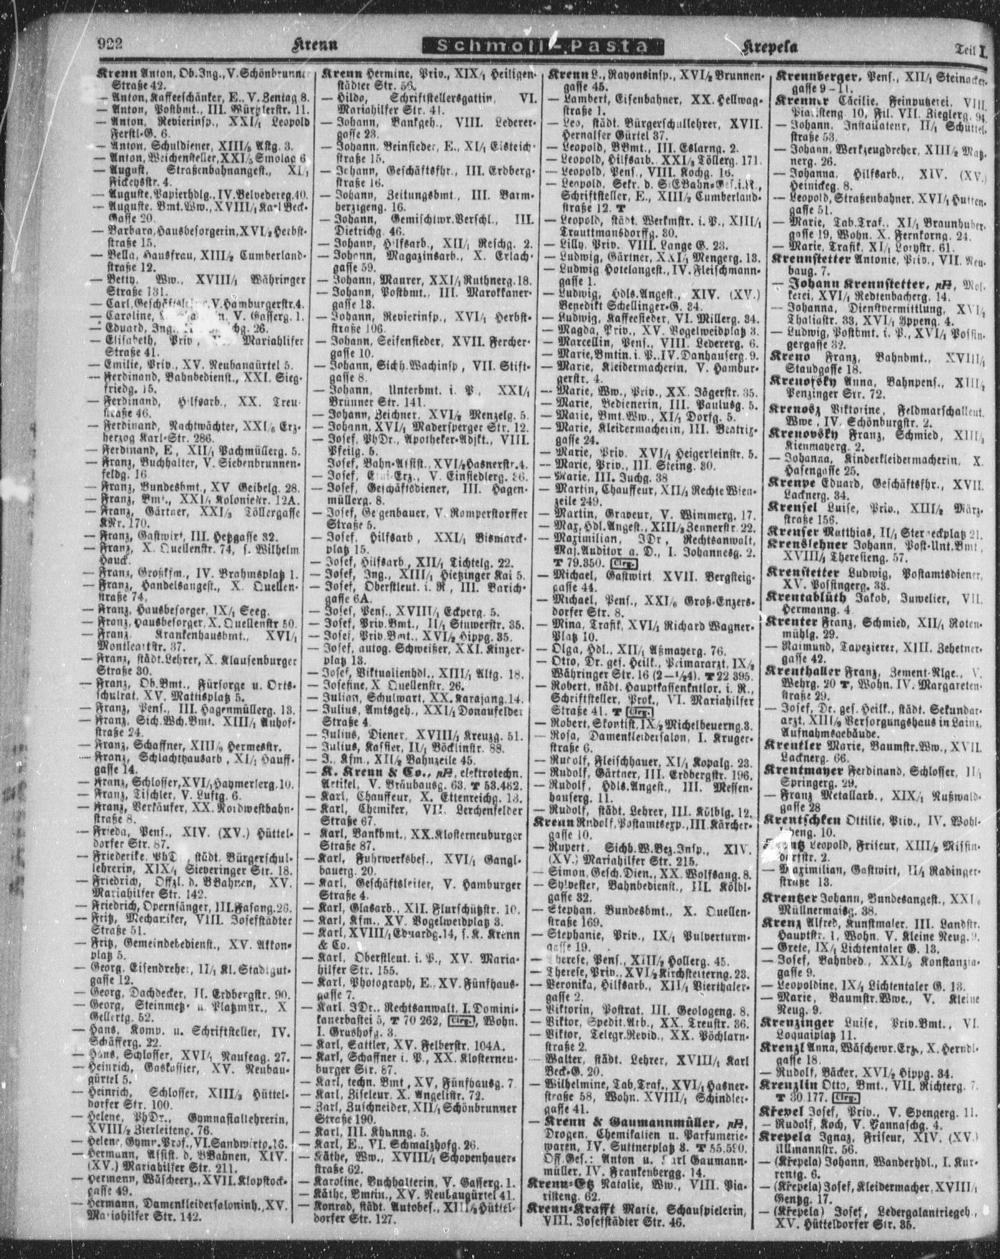 922 Krenn Schmoll-Pasta Krepela Teil I.
Krenn Anton, Ob.Ing., V. Schönbrunner
Straße 42.
— Anton, Kaffeeschänker, E., V. Zentag 8.
— Anton, Postbmt., III. Gürtlerstr. 11.
— Anton, Revierinsp., XXI/1 Leopold
Ferstl-G. 6.
— Anton, Schuldiener, XIII/2 Astg. 3.
— Anton, Weichensteller, XXI/3 Smolag 6
— August, Straßenbahnangest., XI/1
Fickeysstr. 4.
— Auguste, Papierhdlg., IV. Belvedereg. 40.
— Auguste, Bmt.Ww., XVIII/1 Karl Beck-
Gasse 20.
— Barbara, Hausbesorgerin, XVI/2 Herbst-
straße 15.
— Bella, Hausfrau, XIII/2 Cumberland-
straße 12.
— Betty, Ww., XVIII/1 Währinger
Straße 131.
— Carl, V. Hamburgerstr. 4.
— Caroline, V. Gasserg. 1.
— Eduard, Ing., 26.
— Elisabeth, Priv., Mariahilfer
Straße 41.
— Emilie, Priv., XV. Neubaugürtel 5.
— Ferdinand, Bahnbedienst., XXI. Sieg-
friedg. 15.
— Ferdinand, Hilfsarb., XX. Treu-
straße 46.
— Ferdinand, Nachtwächter, XXI/6 Erz-
herzog Karl-Str. 286.
— Ferdinand, E., XII/1 Pachmüllerg. 5.
— Franz, Buchhalter, V. Siebenbrunnen-
feldg. 16
— Franz, Bundesbmt., XV Geibelg. 28.
— Franz, Bmt., XXI/1 Koloniestr. 12A.
— Franz, Gärtner, XXI/3 Töllergasse
KNr. 170.
— Franz, Gastwirt, III. Hetzgasse 32.
— Franz, X. Quellenstr. 74, s. Wilhelm
Hauck.
— Franz, Großkfm., IV. Brahmsplatz 1.
— Franz, Handelsangest., X. Quellen-
straße 74.
— Franz, Hausbesorger, IX/1 Seeg.
— Franz, Hausbesorger, X. Quellenstr 50.
— Franz, Krankenhausbmt., XVI/1
Montleartstr. 37.
— Franz, städt. Lehrer, X. Klausenburger
Straße 30.
— Franz, Ob.Bmt., Fürsorge u. Orts-
schulrat, XV. Mattisplatz 5.
— Franz, Pens., III. Hagenmüllerg. 13.
— Franz, Sich.Wch.Bmt. XIII/1 Auhof-
straße 24.
— Franz, Schaffner, XIII/3 Hermesstr.
— Franz, Schlachthausarb., XI/1 Hauff-
gasse 14.
— Franz, Schlosser, XVI/1 Haymerlerg. 10.
— Franz, Tischler, V. Luftg. 6.
— Franz, Verkäufer, XX. Nordwestbahn-
straße 8.
— Frieda, Pens., XIV. (XV.) Hüttel-
dorfer Str. 87.
— Friederike, PhD., städt. Bürgerschul-
lehrerin, XIX/1 Sieveringer Str. 18.
— Friedrich, Offzl. d. BBahnen, XV.
Mariahilfer Str. 142.
— Friedrich, Opernsänger, III. Fasang. 26.
— Fritz, Mechaniker, VIII. Josefstädter
Straße 51.
— Fritz, Gemeindebedienst., XV. Alkon-
platz 5.
— Georg, Eisendreher, II/1 Kl. Stadlgut-
gasse 12.
— Georg, Dachdecker, II. Erdbergstr. 90.
— Georg, Steinmetz- u. Platzmstr., X
Gellertg. 52.
— Hans, Komp. u. Schriftsteller, IV.
Schäfferg. 22.
— Hans, Schlosser, XVI/1 Nauseag. 27.
— Heinrich, Gaskassier, XV. Neubau-
gürtel 5.
— Heinrich, Schlosser, XIII/3 Hüttel-
dorfer Str. 100.
— Helene, PhDr., Gymnasiallehrerin,
XVIII/2 Zierleiteng. 76.
— Helene, Gymn.Prof., VI. Sandwirtg. 16.
— Hermann, Assist. d. BBahnen, XIV.
(XV.) Mariahilfer Str. 211.
— Hermann, Wäscherz., XVII. Klopstock-
gasse 49.
— Hermann, Damenkleidersaloninh., XV.
Mariahilfer Str. 142.
Krenn Hermine, Priv., XIX/1 Heiligen-
städter Str. 56.
— Hilda, Schriftstellersgattin, VI.
Mariahilfer Str. 41.
— Johann, Bankgeh., VIII. Lederer-
gasse 23.
— Johann, Beinsieder, E., XI/1 Eisteich-
straße 15.
— Johann, Geschäftsfhr., III. Erdberg-
straße 16.
— Johann, Zeitungsbmt., III. Barm-
herzigeng. 16.
— Johann, Gemischtwr.Verschl., III.
Dietrichg. 46.
— Johann, Hilfsarb., XII/1 Reschg. 2.
— Johann, Magazinsarb., X. Erlach-
gasse 59.
— Johann, Maurer, XXI/1 Ruthnerg. 18.
— Johann, Postbmt., III. Marokkaner-
gasse 13.
— Johann, Revierinsp., XVI/1 Herbst-
straße 106.
— Johann, Seifensieder, XVII. Fercher-
gasse 10.
— Johann, Sichh.Wachinsp., VII. Stift-
gasse 8.
— Johann, Unterbmt. i. P., XXI/1
Brünner Str. 141.
— Johann, Zeichner, XVI/2 Menzelg. 5.
— Johann, XV/1 Madersperger Str. 12.
— Josef, PhDr., Apotheker-Adjkt., VIII.
Pfeilg. 5.
— Josef, Bahn-Assist., XVI/2 Hasnerstr. 4.
— Josef, V. Einsiedlerg. 26.
— Josef, Geschäftsdiener, III. Hagen-
müllerg. 8.
— Josef, Gegenbauer, V. Ramperstorffer
Straße 5.
— Josef, Hilfsarb., XXI/1 Bismarck-
platz 15.
— Josef, Hilfsarb., XII/1 Tichtelg. 22.
— Josef, Ing., XIII/1 Hietzinger Kai 5.
— Josef, Oberstleut. i. R., III. Barich-
gasse 6A.
— Josef, Pens., XVIII/1 Eckperg. 5.
— Josef, Priv.Bmt., II/1 Stuwerstr. 35.
— Josef, Priv.Bmt., XVI/2 Hippg. 35.
— Josef, autog. Schweißer, XXI. Kinzer-
platz 13.
— Josef, Viktualienhdl., XIII/1 Altg. 18.
— Josefine, X. Quellenstr. 26.
— Julian, Schulwart, XX. Karajang. 14.
— Julius, Amtsgeh., XXI/1 Donaufelder
Straße 4.
— Julius, Diener, XVIII/1 Kreuzg. 51.
— Julius, Kassier, II/1 Böcklinstr. 88.
— J., Kfm., XII/2 Bahnzeile 45.
— K. Krenn & Co., elektrotechn.
Artikel, V. Bräuhausg. 63. T 53.482.
— Karl, Chauffeur, X. Ettenreichg. 13.
— Karl, Chemiker, VII. Lerchenfelder
Straße 67.
— Karl, Bankbmt., XX. Klosterneuburger
Straße 87.
— Karl, Fuhrwerksbes., XVI/1 Gangl-
bauerg. 20.
— Karl, Geschäftsleiter, V. Hamburger
Straße 4.
— Karl, Glasarb., XII. Flurschützstr. 10.
— Karl, Kfm., XV. Vogelweidplatz 3.
— Karl, XVIII/1 Eduardg. 14, s. K. Krenn
& Co.
— Karl, Oberstleut. i. P., XV. Maria-
hilfer Str. 155.
— Karl, Photograph, E., XV. Fünfhaus-
gasse 7.
— Karl, JDr., Rechtsanwalt, I. Domini-
kanerbastei 5, T 70 262, Clrg., Wohn.
I. Grashofg. 3.
— Karl, Sattler, XV. Felberstr. 104A.
— Karl, Schaffner i. P., XX. Klosterneu-
burger Str. 87.
— Karl, techn. Bmt., XV. Fünfhausg. 7
— Karl, Ziseleur, X. Angelistr. 72.
— Karl, Zuschneider, XII/1 Schönbrunner
Straße 190.
— Karl, III. Khunng. 5.
— Karl, E., VI. Schmalzhofg. 26.
— Käthe, Ww., XVIII/1 Schopenhauer-
straße 62.
— Karoline, Buchhalterin, V. Gasserg. 1.
— Käthe, Bmtin., XV. Neubaugürtel 41.
— Konrad, städt. Autobes., XIII/3 Hüttel-
dorfer Str. 127.
Krenn L., Rayonsinsp., XVI/2 Brunnen-
gasse 45.
— Lambert, Eisenbahner, XX. Hellwag-
straße 1.
— Leo, städt. Bürgerschullehrer, XVII.
Hernalser Gürtel 37.
— Leopold, BBmt., III. Eslarng. 2.
— Leopold, Hilfsarb. XXI/3 Töllerg. 171.
— Leopold, Pens., VIII. Kochg. 16.
— Leopold, Sekr. d. StEBahn-Ges. i. R.,
Schriftsteller, E., XIII/2 Cumberland-
straße 12. T
— Leopold, städt. Werkmstr. i. P., XIII/1
Trauttmansdorffg. 30.
— Lilly, Priv. VIII. Lange G. 23.
— Ludwig, Gärtner, XXI/1 Mengerg. 13.
— Ludwig Hotelangest., IV. Fleischmann-
gasse 1.
— Ludwig, Hdls.Angest., XIV. (XV.)
Benedikt Schellinger-G. 34.
— Ludwig, Kaffeesieder, VI. Millerg. 34.
— Magda, Priv., XV. Vogelweidplatz 3.
— Marcellin, Pens., VIII. Ledererg. 6.
— Marie, Bmtin. i. P., IV. Danhauserg. 9.
— Marie, Kleidermacherin, V. Hambur-
gerstr. 4.
— Marie, Ww., Priv., XX. Jägerstr. 35.
— Marie, Bedienerin, III. Paulusg. 5.
— Marie, Bmt.Ww., XI/1 Dorfg. 5.
— Marie, Kleidermacherin, III. Beatrix-
gasse 24.
— Marie, Priv. XVI/1 Heigerleinstr. 5.
— Marie, Priv., III. Steing. 30.
— Marie, III. Juchg. 38
— Martin, Chauffeur, XII/1 Rechte Wien-
zeile 249.
— Martin, Graveur, V. Wimmerg. 17.
— Max, Hdl.Angest., XIII/2 Zennerstr. 22.
— Maximilian, JDr., Rechtsanwalt,
Maj.Auditor a. D., I. Johannesg. 2.
T 79.350. Clrg.
— Michael, Gastwirt XVII. Bergsteig-
gasse 44.
— Michael, Pens., XXI/6 Groß-Enzers-
dorfer Str. 8.
— Mina, Trafik, XVI/1 Richard Wagner-
Platz 10.
— Olga, Hdl., XII/1 Aßmayerg. 76.
— Otto, Dr. ges. Heilk., Primararzt, IX/2
Währinger Str. 16 (2—1/24). T 22 395.
— Robert, städt. Hauptkassenkntlor. i. R.,
Schriftsteller, Prof., VI. Mariahilfer
Straße 41. T Clrg.
— Robert, Skontist, IX/2 Michelbeuerng. 3.
— Rosa, Damenkleidersalon, I. Kruger-
straße 6.
— Rudolf, Fleischhauer, XI/1 Kopalg. 23.
— Rudolf, Gärtner, III. Erdbergstr. 196.
— Rudolf, Hdls.Angest., III. Messen-
hauserg. 11.
— Rudolf, städt. Lehrer, III. Kölblg. 12.
Krenn Rudolf, Postamtsexp., III. Kärcher-
gasse 10.
— Rupert, Sichh.W.Bez.Insp., XIV.
(XV.) Mariahilfer Str. 215.
— Simon, Gesch.Dien., XX. Wolfsaug. 8.
— Sylvester, Bahnbedienst., III. Kölbl-
gasse 32.
— Stephan, Bundesbmt., X. Quellen-
straße 169.
— Stephanie, Priv., IX/1 Pulverturm-
gasse 19.
— Therese, Pens., XIII/2 Hollerg. 45.
— Therese, Priv., XVI/2 Kirchstetterng. 23.
— Veronika, Hilfsarb., XII/1 Vierthaler-
gasse 2.
— Viktorin, Postrat, III. Geologeng. 8.
— Viktor, Spedit.Arb., XX. Treustr. 36.
— Viktor, Telegr.Revid., XX. Pöchlarn-
straße 2.
— Walter, städt. Lehrer, XVIII/1 Karl
Beck-G. 20.
— Wilhelmine, Tab.Traf., XVI/1 Hasner-
straße 58, Wohn. XVIII/1 Schindler-
gasse 41.
— Krenn & Gaumannmüller,
Drogen, Chemikalien u. Parfumerie-
waren, IV. Suttnerplatz 3. T 55.590.
Off.Ges.: Anton u. Karl Gaumann-
müller, IV. Frankenbergg. 14.
Krenn-Etz Natalie, Ww., VIII. Pia-
risteng. 62.
Krenn-Krafft Marie, Schauspielerin,
VIII. Josefstädter Str. 46.
Krennberger, Pens., XII/1 Steinacker-
gasse 9—11.
Krenner Cäcilie, Feinputzerei, VIII.
Piaristeng. 10, Fil. VII. Zieglerg. 94.
— Johann, Installateur, II/1 Schüttel-
straße 53.
— Johann, Werkzeugdreher, XIII/2 Matz-
nerg. 26.
— Johanna, Hilfsarb., XIV. (XV.)
Heinickeg. 8.
— Leopold, Straßenbahner, XVI/1 Hutten-
gasse 51.
— Marie, Tab.Traf., XI/1 Braunhuber-
gasse 19, Wohn. X. Fernkorng. 24.
— Marie, Trafik, XI/1 Lorystr. 61.
Krennstetter Antonie, Priv., VII. Neu-
baug. 7.
— Johann Krennstetter, Mol-
kerei, XVI/1 Redtenbacherg. 14.
— Johanna, Dienstvermittlung, XVI/1
Thaliastr. 33, XVI/1 Eppeng. 4.
— Ludwig, Postbmt. i. P., XVI/1 Possin-
gergasse 32.
Kreno Franz, Bahnbmt., XVIII/1
Staudgasse 18.
Krenofsky Anna, Bahnpens., XIII/1
Penzinger Str. 72.
Krenosz Viktorine, Feldmarschalleut.
Wwe., IV. Schönburgstr. 2.
Krenovsky Franz, Schmied, XIII/1
Kienmayerg. 2.
— Johanna, Kinderkleidermacherin, X.
Hasengasse 25.
Krenpe Eduard, Geschäftsfhr., XVII.
Lacknerg. 34.
Krensel Luise, Priv., XIII/2 März-
straße 156.
Krenser Matthias, II/1 Sterneckplatz 21.
Krenslehner Johann, Post-Unt.Bmt.,
XVIII/1 Theresieng. 57.
Krenstetter Ludwig, Postamtsdiener,
XV. Possingerg. 33.
Krentablüth Jakob, Juwelier, VII.
Hermanng. 4
Krenter Franz, Schmied, XIII/1 Roten-
mühlg. 29.
— Raimund, Tapezierer, XIII. Zehetner-
gasse 42.
Krenthaller Franz, Zement-Rlge., V.
Wehrg. 20 T, Wohn. IV. Margareten-
straße 29.
— Josef, Dr. ges. Heilk., städt. Sekundar-
arzt, XIII/3 Versorgungshaus in Lainz,
Aufnahmsgebäude.
Krentler Marie, Baumstr.Ww., XVII.
Lackerg. 66.
Krentmayer Ferdinand, Schlosser, II/1
Springerg. 29.
— Franz, Metallarb., XIX/1 Nußwald-
gasse 28
Krentschken Ottilie, Priv., IV. Wohl-
lebeng. 10.
Leopold, Friseur, XIII/2 Missin-
dorfstr. 2.
— Maximilian, Gastwirt, II/1 Radinger-
straße 13.
Krentzer Johann, Bundesangest., XXI/1
Müllnermaisg. 38.
Krenz Alfred, Kunstmaler, III. Landstr.
Hauptstr. 1, Wohn. V. Kleine Neug. 9.
— Grete, IX/1 Lichtentaler G. 13.
— Josef, Bahnbed., XXI/5 Konstanzia-
gasse 9.
— Leopoldine, IX/2 Lichtentaler G. 13.
— Marie, Baumstr.Wwe., V. Kleine
Neug. 9.
Krenzinger Luise, Priv.Bmt., VI.
Loquaiplatz 11.
Krenzl Anna, Wäschewr.Erz., X. Herndl-
gasse 18.
— Rudolf, Bäcker, XVI/2 Hippg. 34.
Krenzlin Otto, Bmt., VII. Richterg. 7.
T 30.177. Clrg.
Krepel Josef, Priv., V. Spengerg. 11.
— Rudolf, Koch, V. Vannaschg. 4.
Krepela Ignaz, Friseur, XIV. (XV.)
Ullmannstr. 56.
— (Křepela) Johann, Wanderhdl., I. Kur-
rentg. 6.
— (Křepela) Josef, Kleidermacher, XVIII/1
Gentzg. 17.
— (Křepela) Josef, Ledergalantriegesch.,
XV. Hütteldorfer Str. 35.